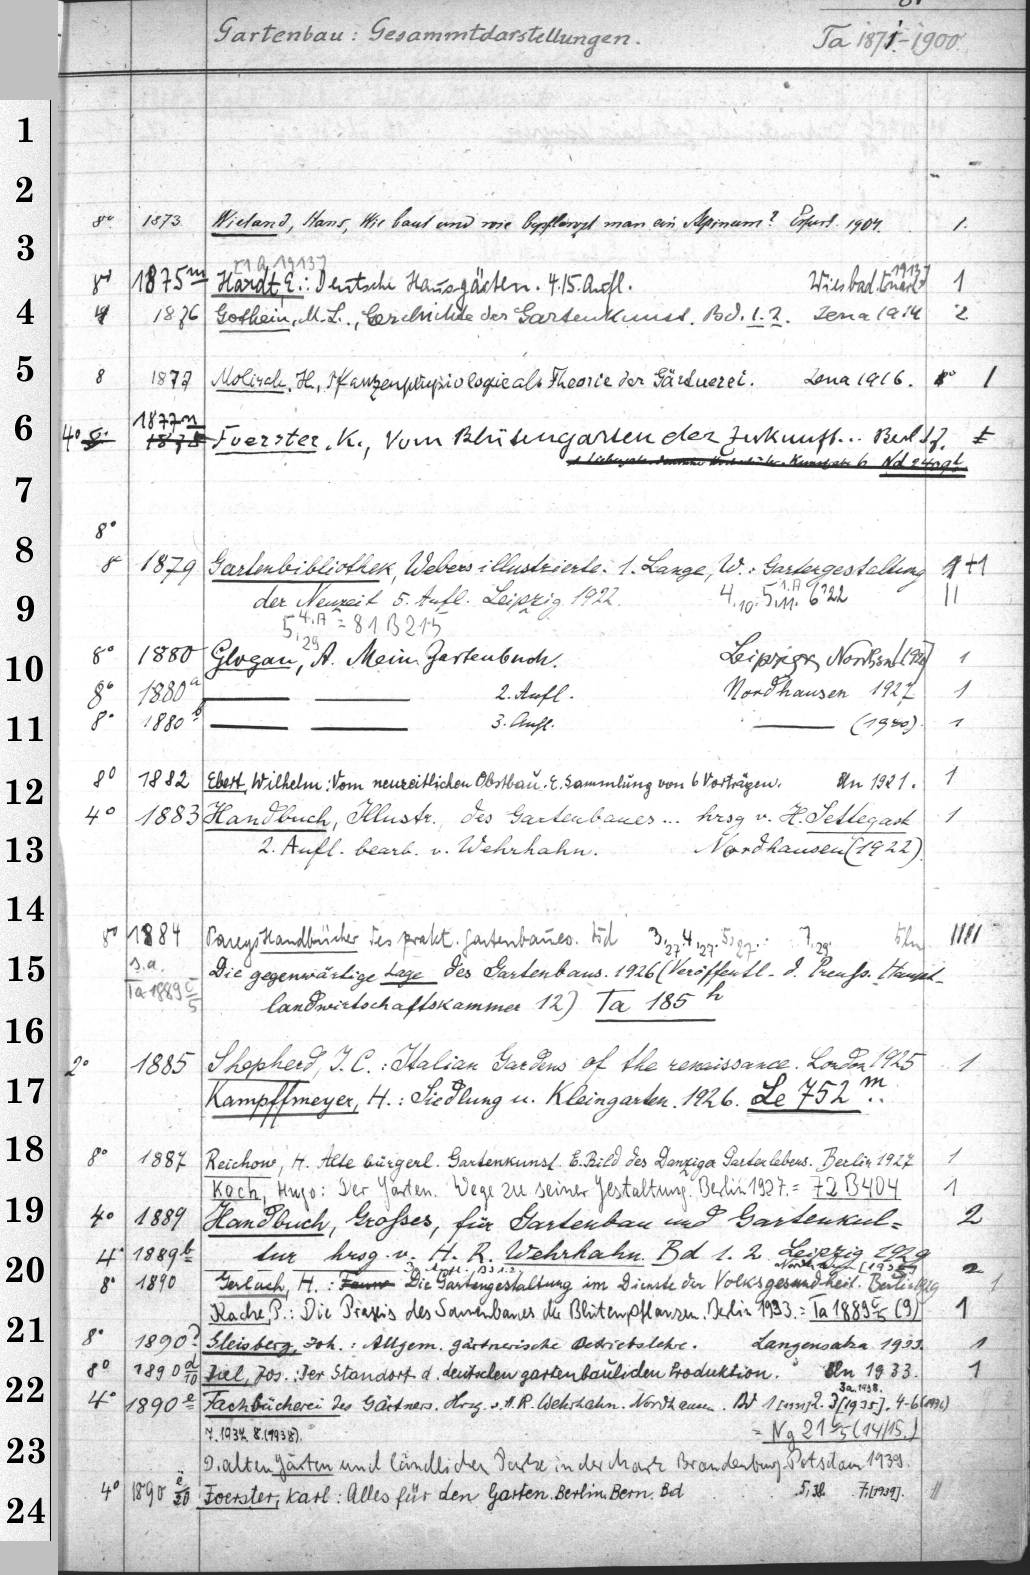 Gartenbau: Gesammtdarstellungen. Ta 1871-1900.
1
2
8° 1873 Wieland, Hans, Wie baut und wie bepflanzt man ein Alpinum? Erfurt. 1904. 1.
3
8° 1875m Hardt, E.: Deutsche Hausgärten. 4.15. Aufl. Wiesbad. 1913 1
4
4° 1876 Gothein, M. L., Geschichte der Gartenkunst. Bd. 1. 2. Jena 1914 2
5
8 1877 Molisch, H., Pflanzenphysiologie als Theorie der Gärtnerei. Jena 1916. 1
6
4° 1877n Foerster, K., Vom Blütengarten der Zukunft... Berl.
7
8°
8
8° 1879 Gartenbibliothek, Webers illustrierte. 1. Lange, W.: Gartengestaltung 1+1
9
der Neuzeit 5. Aufl. Leipzig 1922.
= 81 B 215
10
8° 1880 Glogau, A. Mein Gartenbuch. Leipzig, Nordhsn. 1
8° 1880a 2. Aufl. Nordhausen 1927 1
11
8° 1880b 3. Aufl. 1
12
8° 1882 Ebert, Wilhelm: Vom neuzeitlichen Obstbau. E. Sammlung von 6 Vorträgen. Bln 1921. 1
4° 1883 Handbuch, Illustr., des Gartenbaues... hrsg v. H. Settegast 1
13
2. Aufl. bearb. v. Wehrhahn. Nordhausen (1922).
14
8° 1884 Pareys Handbücher des prakt. Gartenbaues. Bd 3,27. 4,27. 5,27. 7,29. Bln IIIII
15
s.a. Die gegenwärtige Lage des Gartenbaus. 1926 (Veröffentl. d. Preuss. Haupt-
Ta 1889 c/5 landwirtschaftskammer 12) Ta 185 h
16
2° 1885 Shepherd, J. C.: Italian Gardens of the renaissance. London 1925 1
17
Kampffmeyer, H.: Siedlung u. Kleingarten. 1926. Le 752 m.
18
8° 1887 Reichow, H. Alte bürgerl. Gartenkunst. E. Bild des Danziger Gartenlebens. Berlin 1927 1
Koch, Hugo: Der Garten. Wege zu seiner Gestaltung. Berlin 1927. = 72 B 404 1
19
4° 1889 Handbuch, Grosses, für Gartenbau und Gartenkul= 2
4° 1889b tur hrsg. v. H. R. Wehrhahn. Bd 1. 2. Leipzig 1929 2
20
8° 1890 Gerlach, H.: Die Gartengestaltung im Dienste der Volksgesundheit. Berlin 1
Kache, P.: Die Praxis des Samenbaues der Blütenpflanzen. Berlin 1933. = Ta 1889 c/5 (9) 1
21
8° 1890 Gleisberg, Joh.: Allgem. gärtnerische Betriebslehre. Langensalza 1933. 1
8° 1890 d/10 Jos.: Der Standort d. deutschen gartenbaulichen Produktion. Bln 1933. 1
22
4° 1890 e Fachbücherei des Gärtners. Hrsg. v. H. R. Wehrhahn. Nordhausen. Bd 1 2. 3 [1935]. 4-6 (1936)
7. 1937. 8. (1938). = Ng 21 (14/15.)
23
D. alten Gärten und ländlichen Parke in der Mark Brandenburg. Potsdam 1939.
4° 1890 e/20 Foerster, Karl: Alles für den Garten. Berlin, Bern. Bd 5, 38. 7. [1939]. II
24